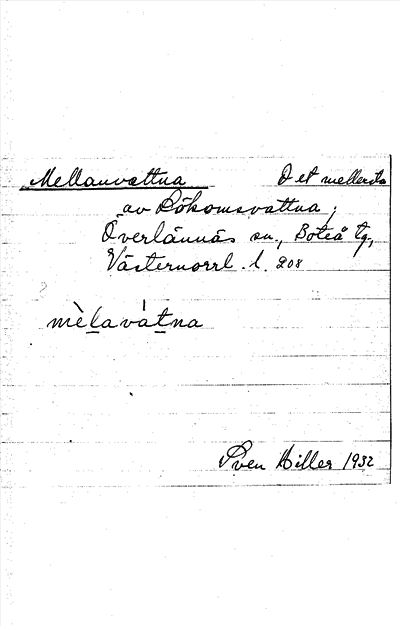 Mellanvattna Det mellersta
av Rökomsvattna,
Överlännäs sn., Boteå tg,
Västernorrl. l. 208
mèl̲avát̲na
Sven Hiller 1932